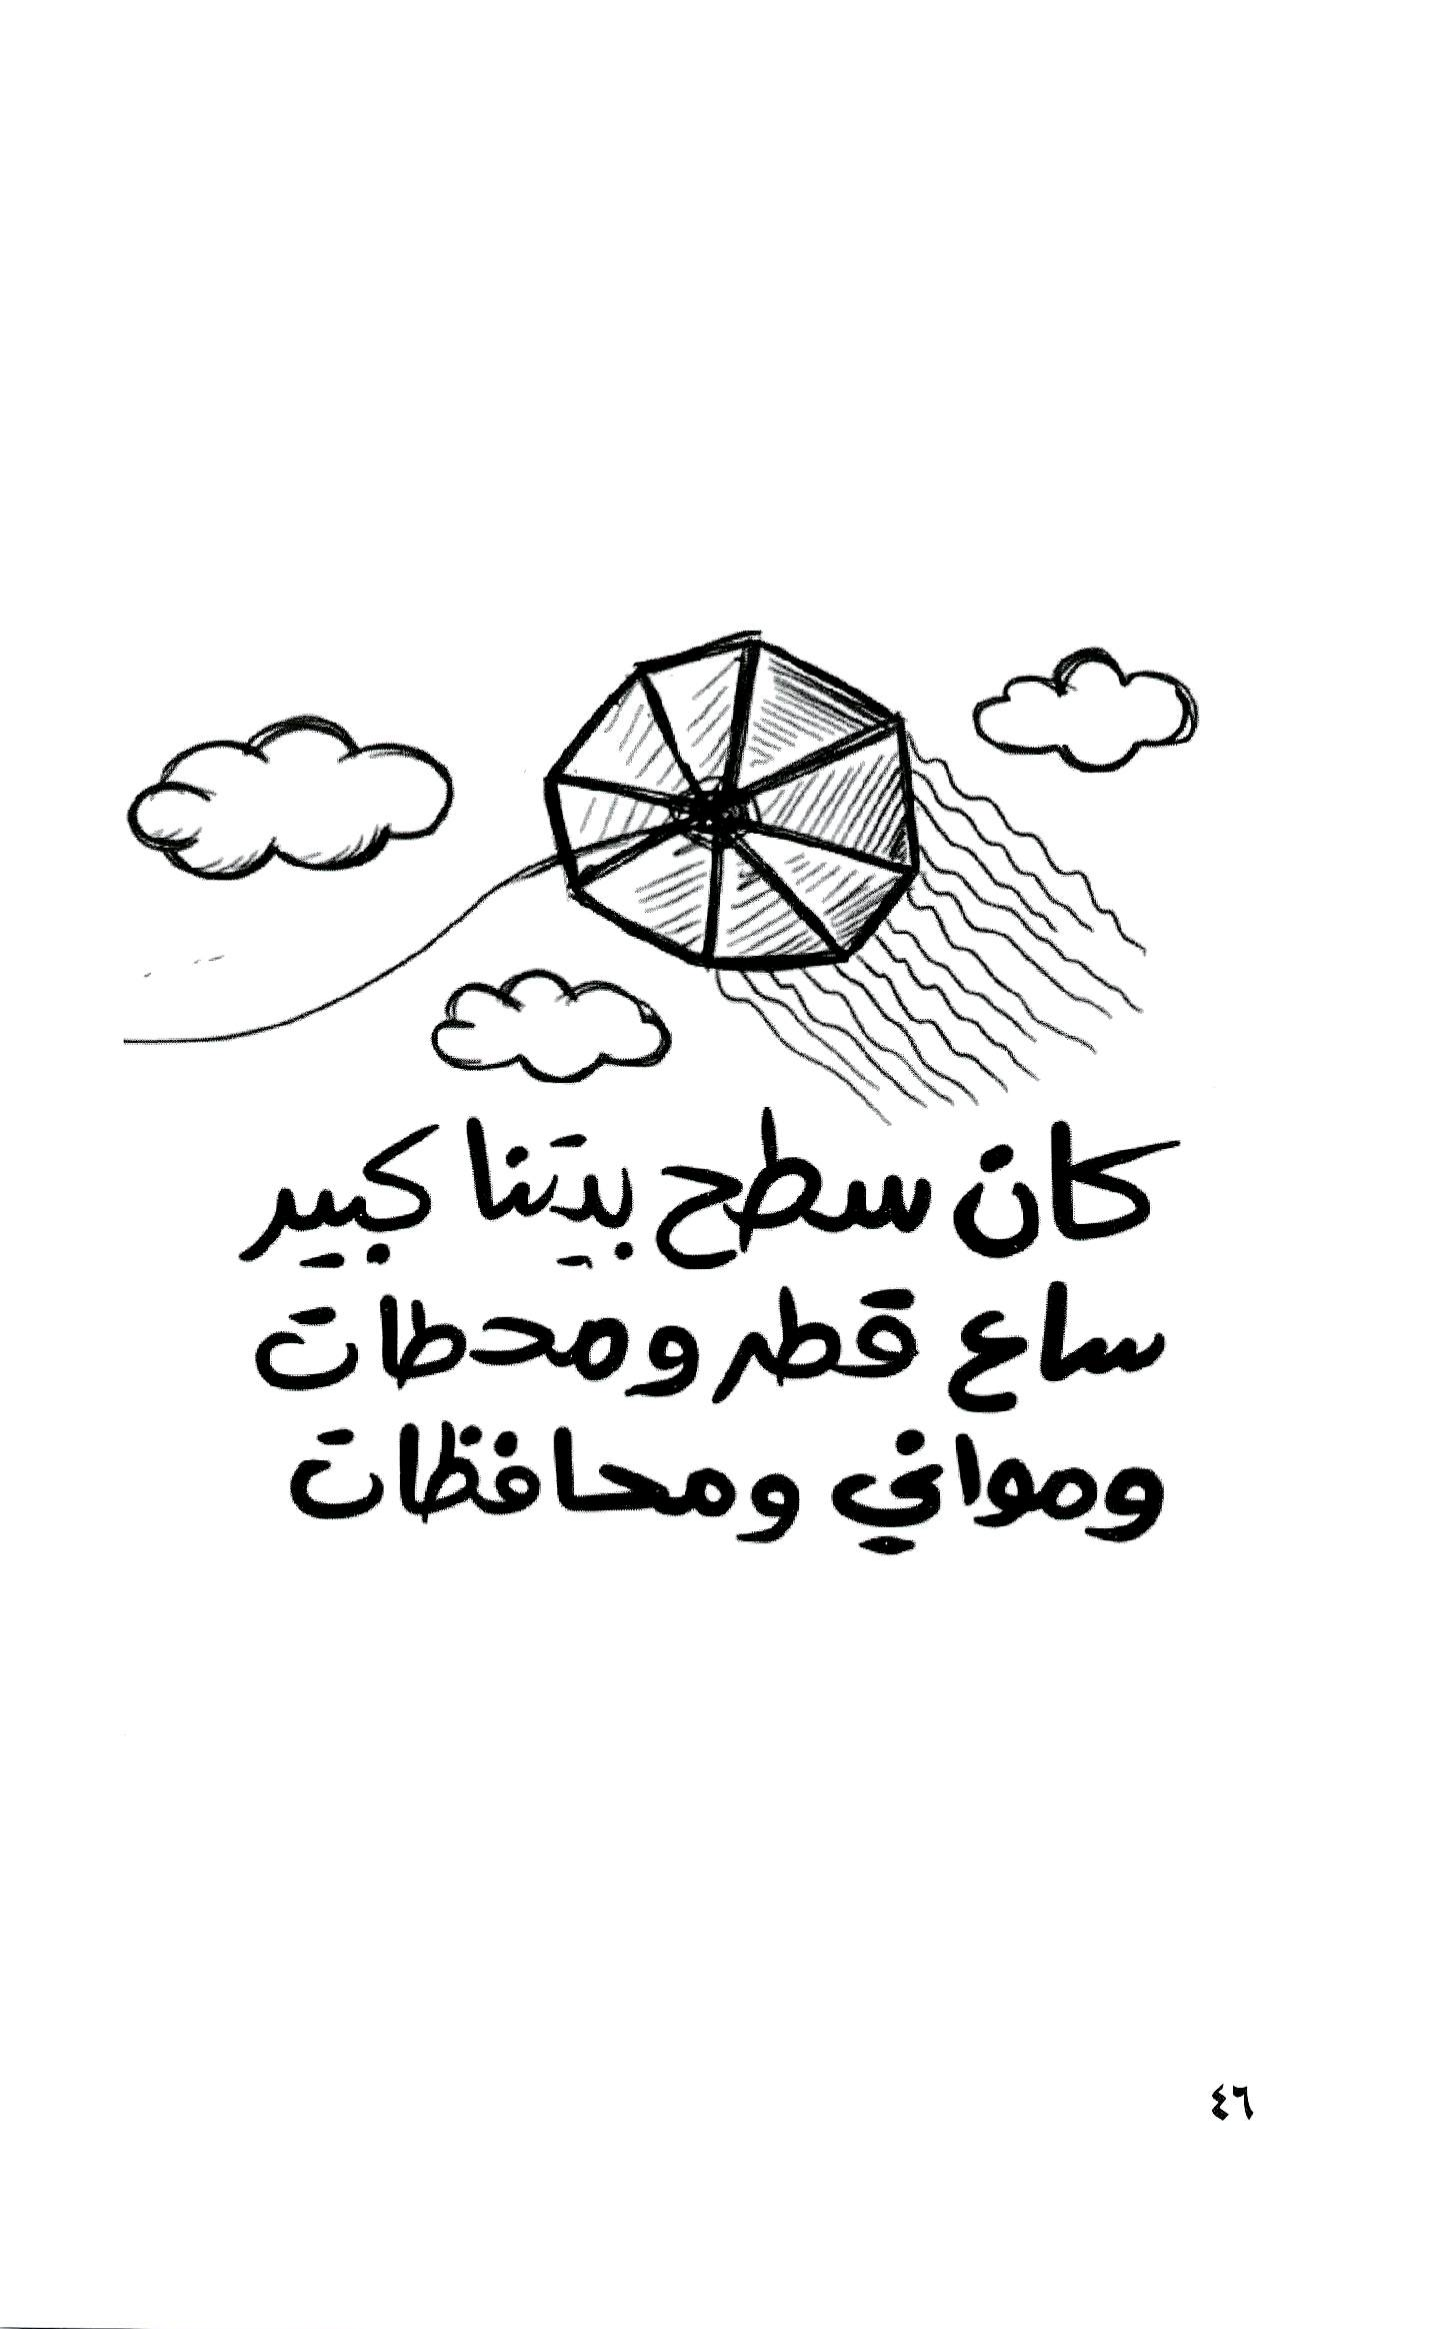 كان سطح بيتنا كبير
ساع قطر ومحطات
ومواني ومحافظات
٤٦